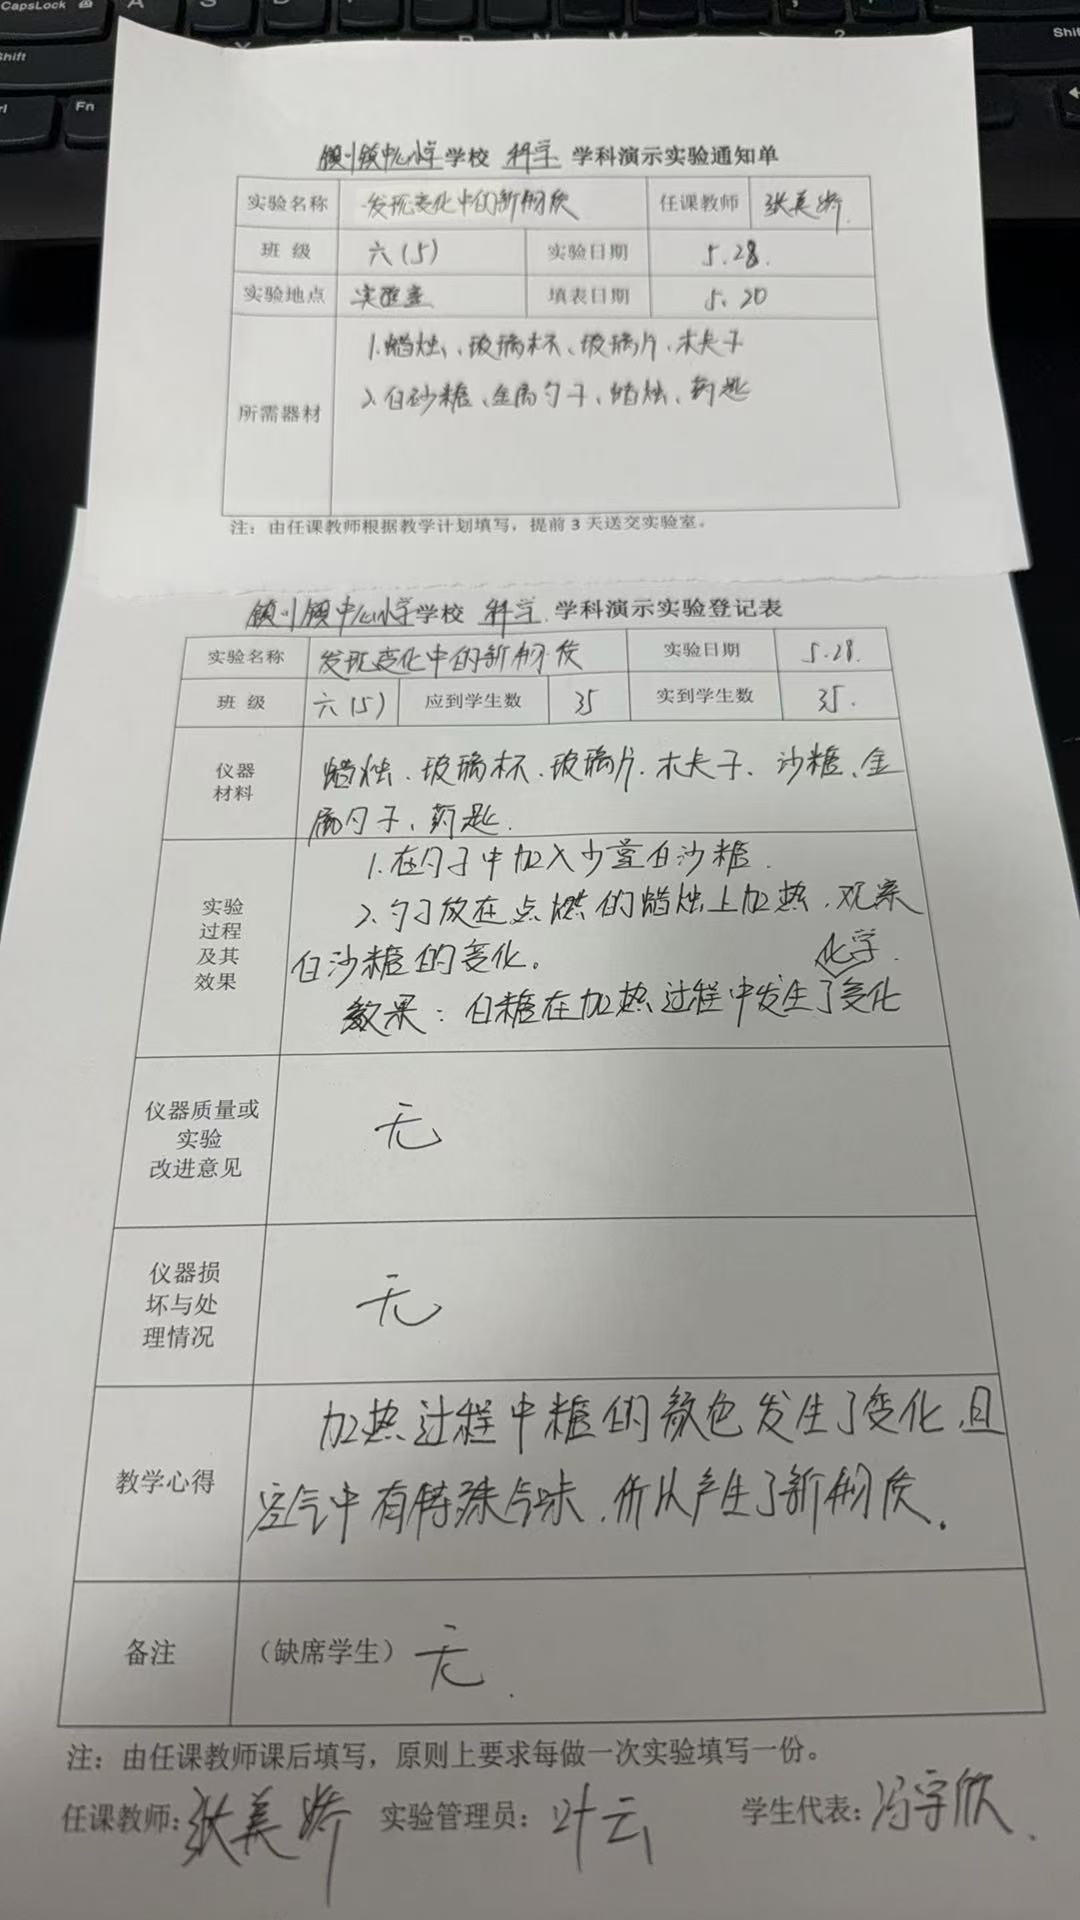 CapsLock
Shift
Fn
镇川镇中心小学学校 科学 学科演示实验通知单
实验名称 发现变化中的新物质 任课教师 张美娇
班 级 六(5) 实验日期 5.28.
实验地点 实验室 填表日期 5.20
所需器材
1.蜡烛、玻璃杯、玻璃片、木夹子
2.白砂糖、金属勺子、蜡烛、药匙
注：由任课教师根据教学计划填写，提前 3 天送交实验室。
镇川镇中心小学学校 科学 学科演示实验登记表
实验名称 发现变化中的新物质 实验日期 5.28.
班 级 六(5) 应到学生数 35 实到学生数 35.
仪器
材料
蜡烛、玻璃杯、玻璃片、木夹子、沙糖、金
属勺子、药匙.
实验
过程
及其
效果
1.在勺子中加入少量白沙糖.
2.勺子放在点燃的蜡烛上加热,观察
白沙糖的变化。
效果：白糖在加热过程中发生了化学变化
仪器质量或
实验
改进意见
无
仪器损
坏与处
理情况
无
教学心得
加热过程中糖的颜色发生了变化,且
空气中有特殊气味,所以产生了新物质。
备注 （缺席学生）无.
注：由任课教师课后填写，原则上要求每做一次实验填写一份。
任课教师:张美娇 实验管理员:叶云 学生代表:冯宇欣.